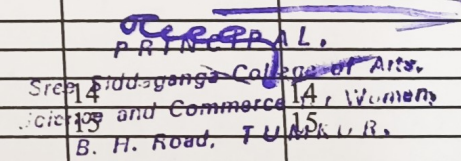 PRINCIPAL.
Sree Siddaganga College of Arts,
14 14
Science and Commerce for Women,
15 15
B. H. Road, TUMKUR.